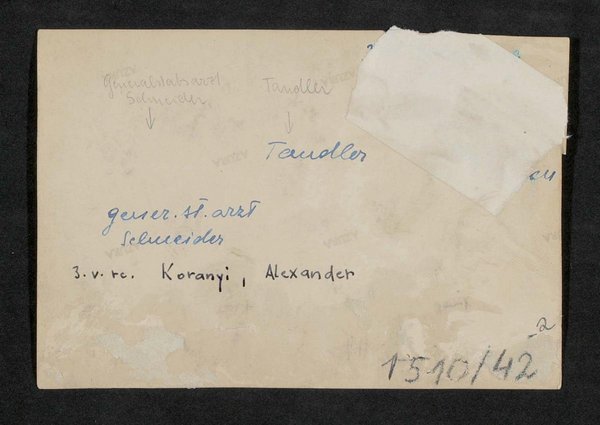 Generalstabsarzt Tandler
Schneider
Tandler
en
gener. st. arzt
Schneider
3. v. re. Koranyi, Alexander
1510/42